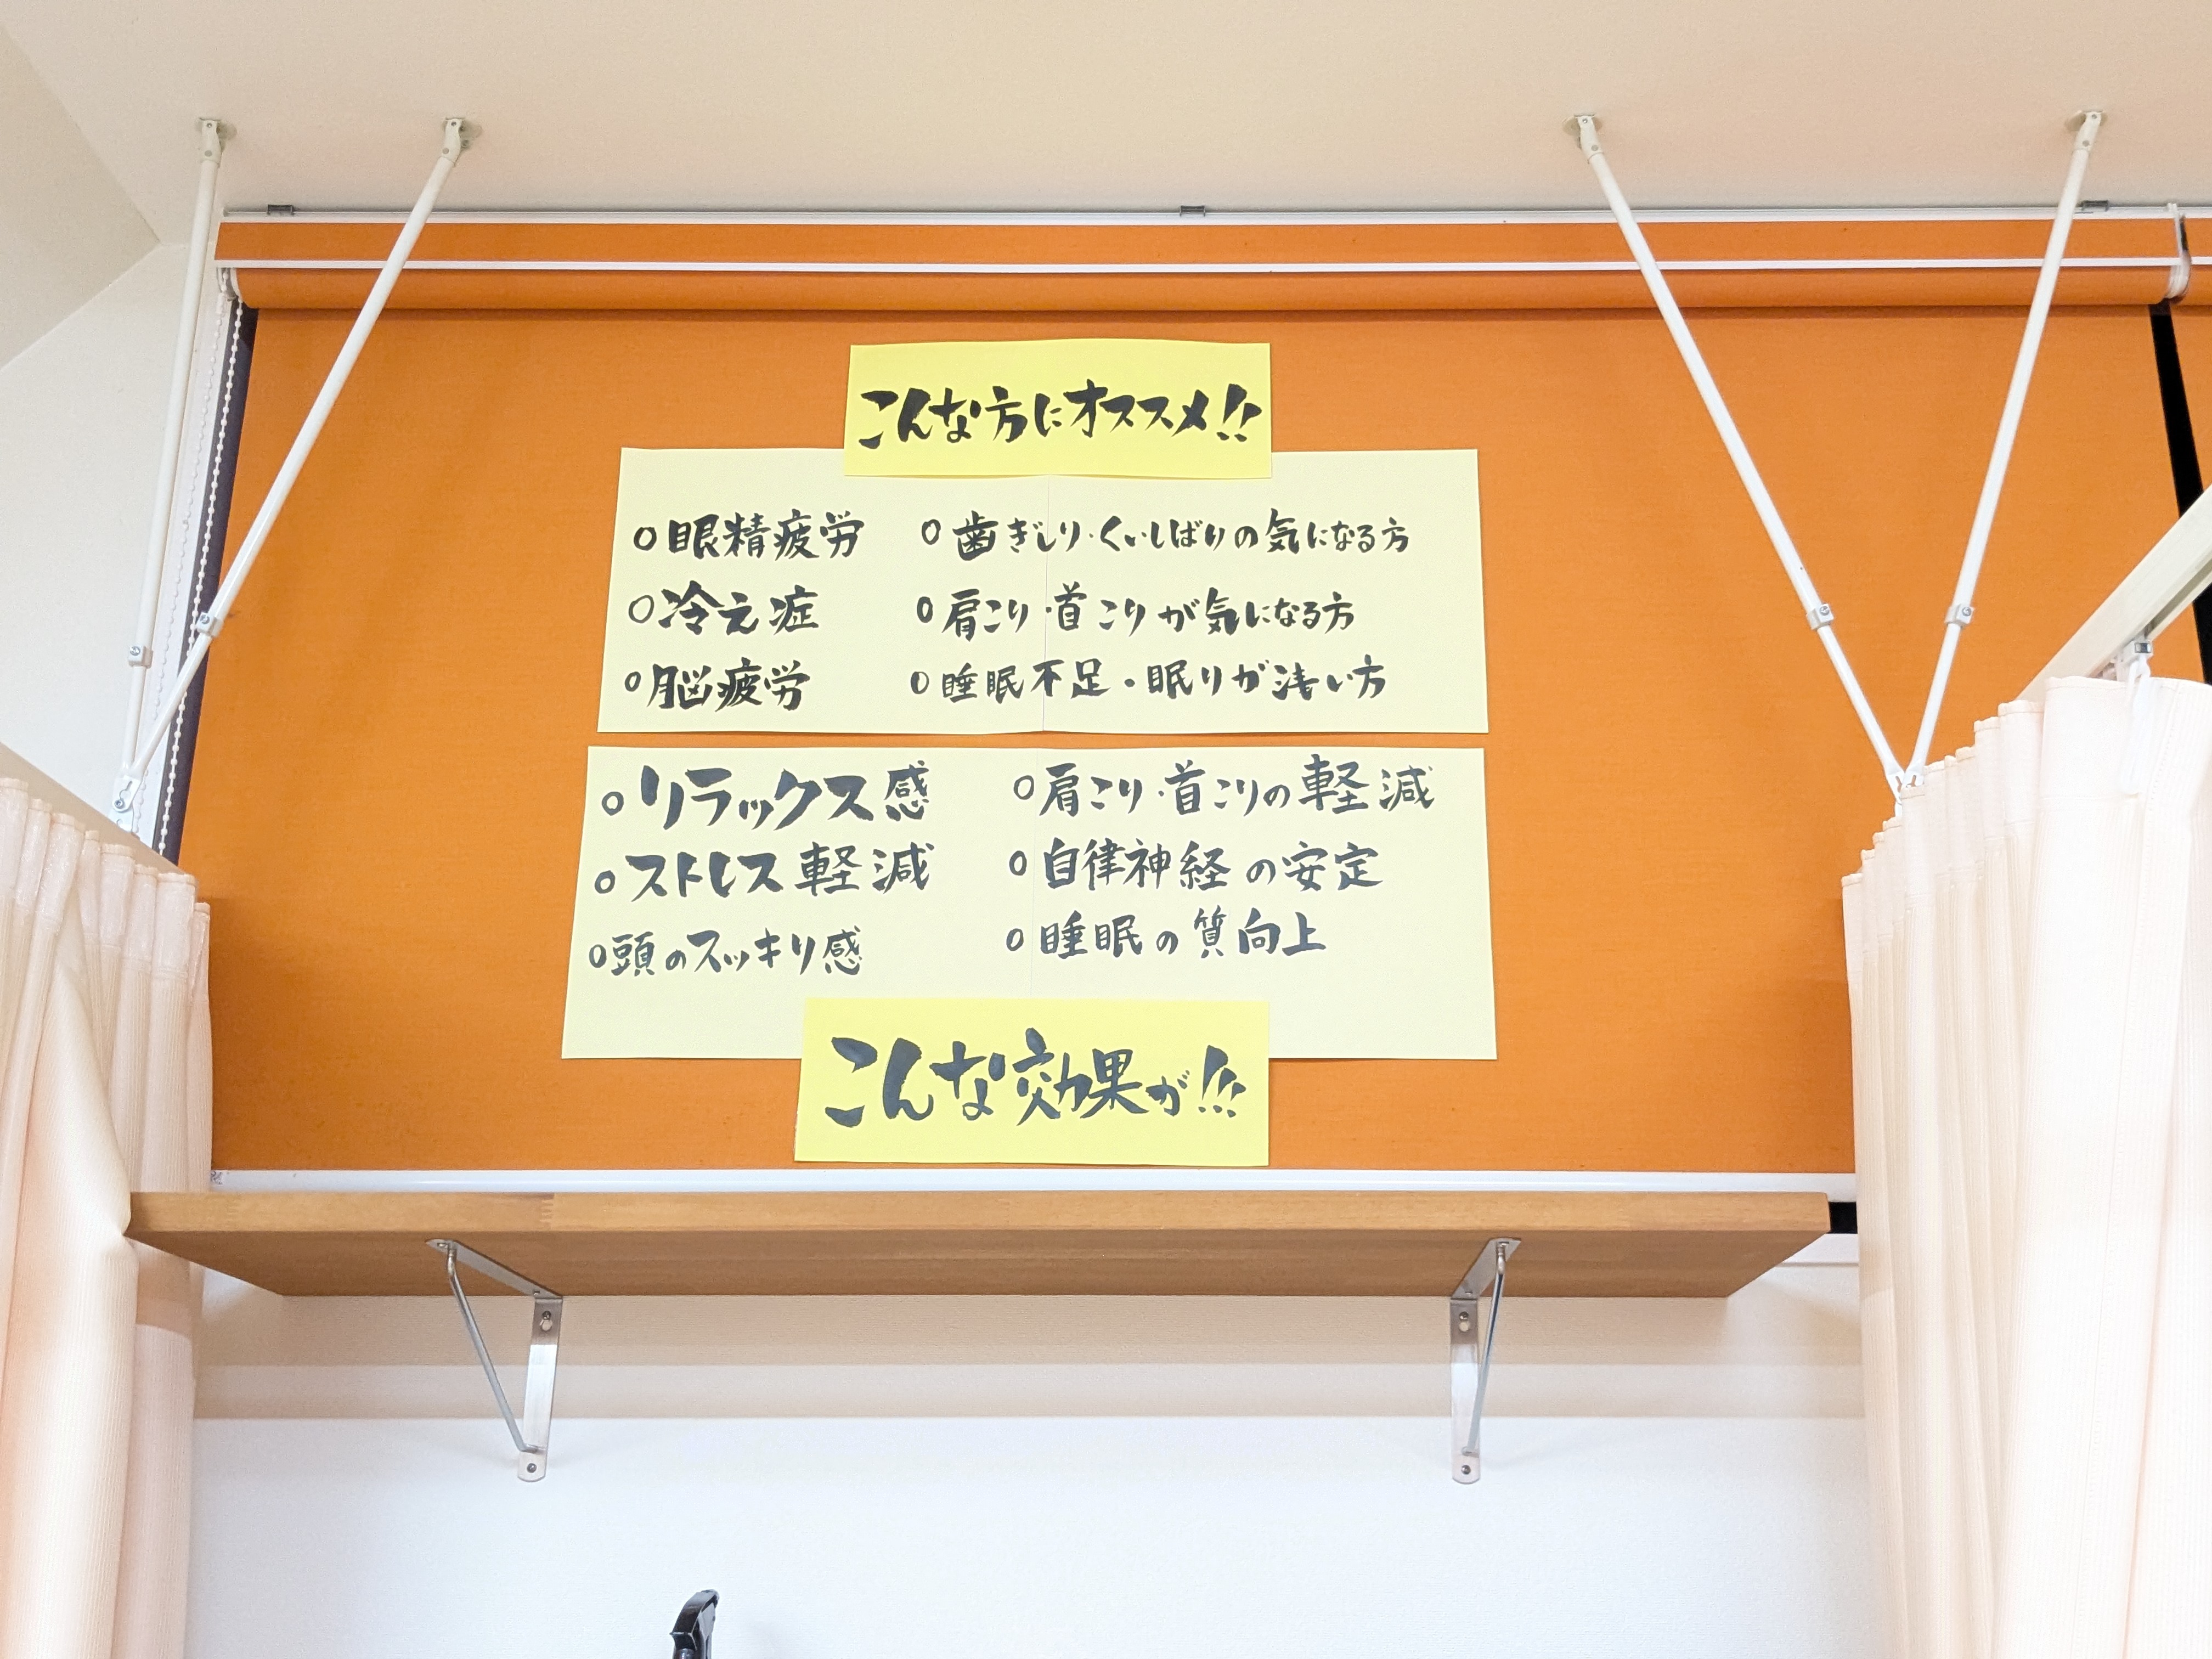 こんな方にオススメ!!
○眼精疲労
○冷え症
○脳疲労
○歯ぎしり・くいしばりの気になる方
○肩こり・首こりが気になる方
○睡眠不足・眠りが浅い方
○リラックス感
○ストレス軽減
○頭のスッキリ感
○肩こり・首こりの軽減
○自律神経の安定
○睡眠の質向上
こんな効果が!!!